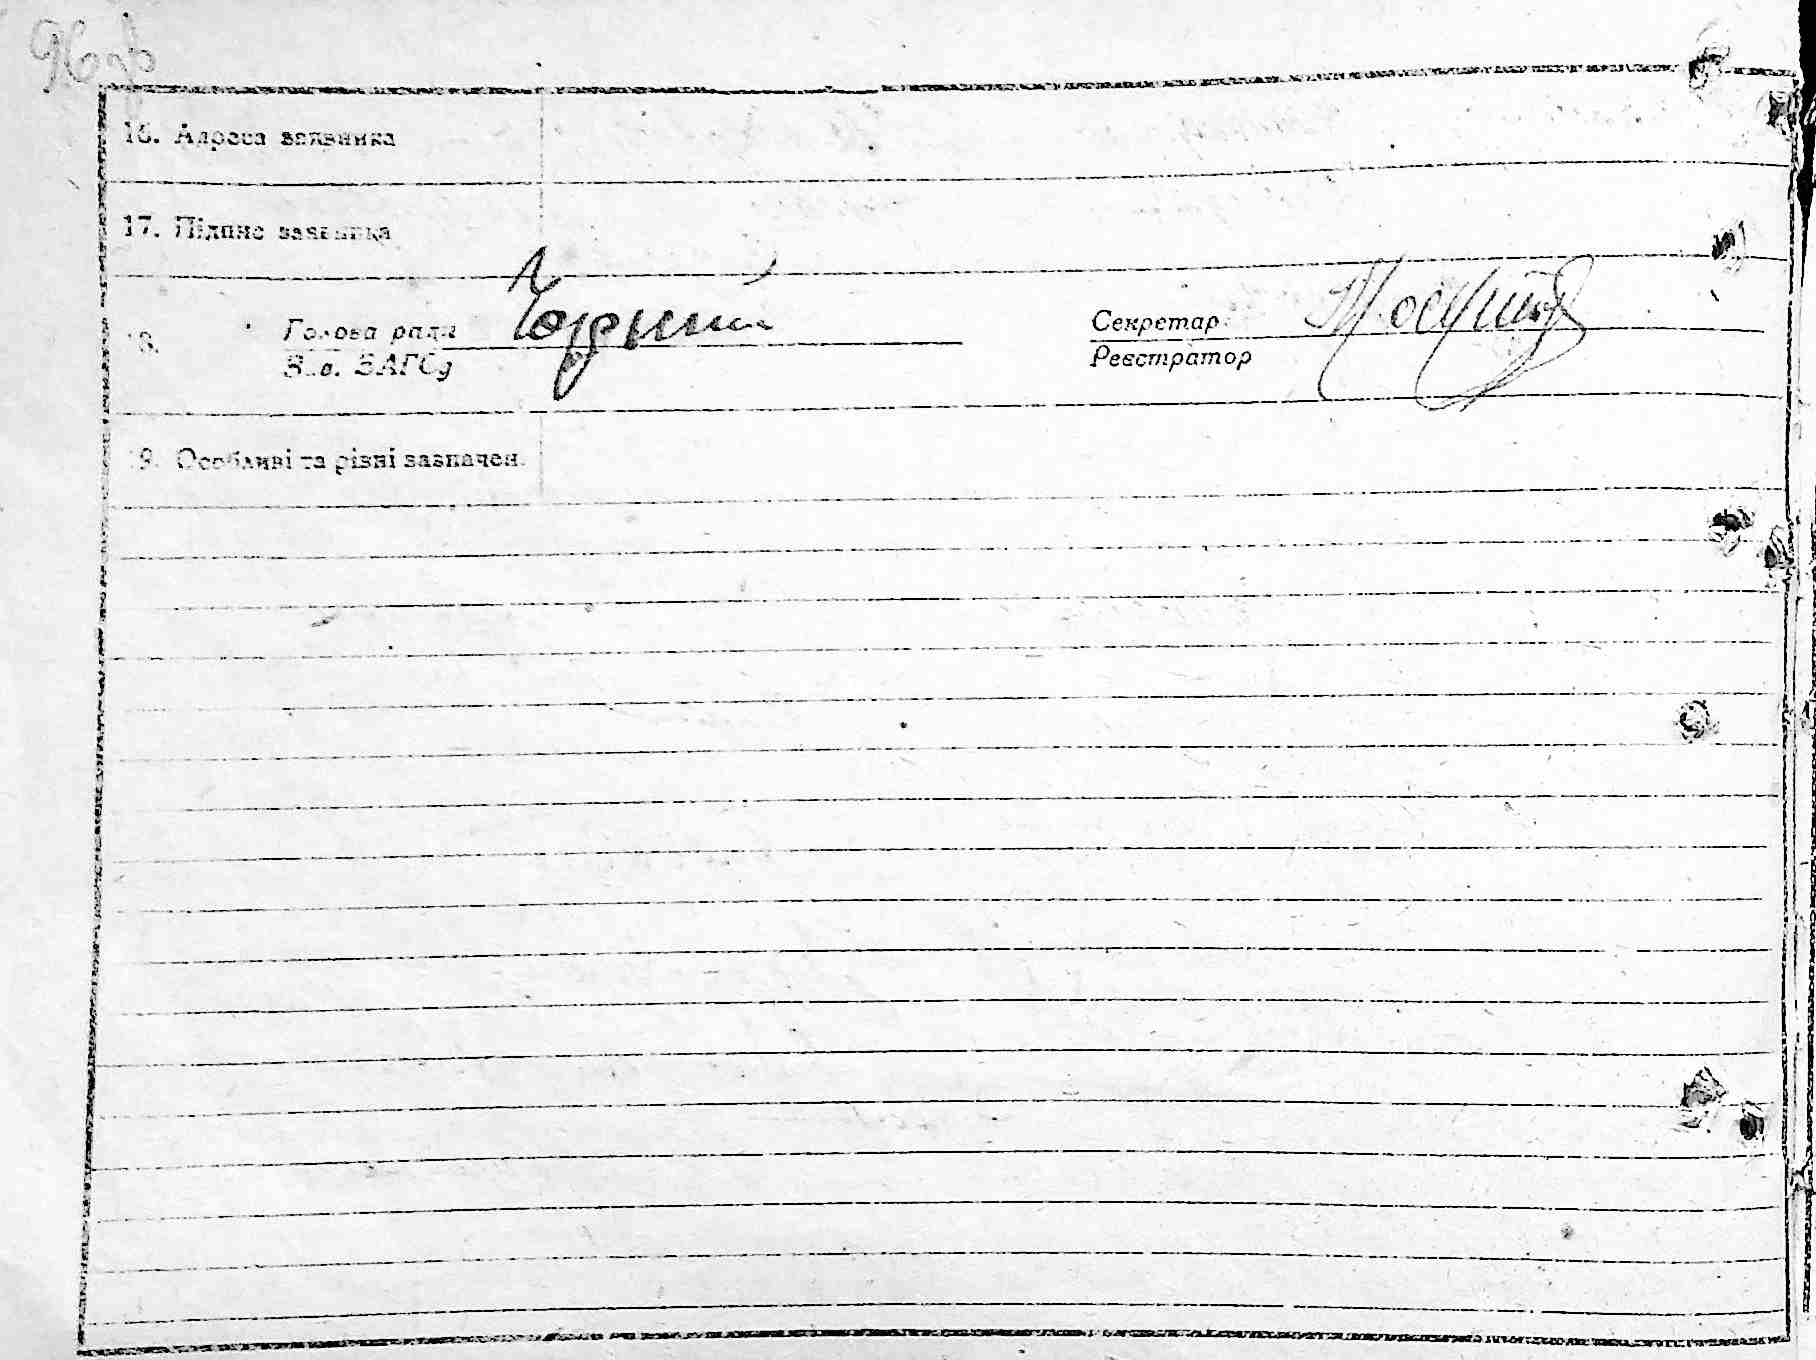 96зв
16. Адреса заявника
17. Підпис заявника
18. Голова ради Чорний Секретар
Зав. ЗАГСу Реєстратор
19. Особливі та різні зазначен.